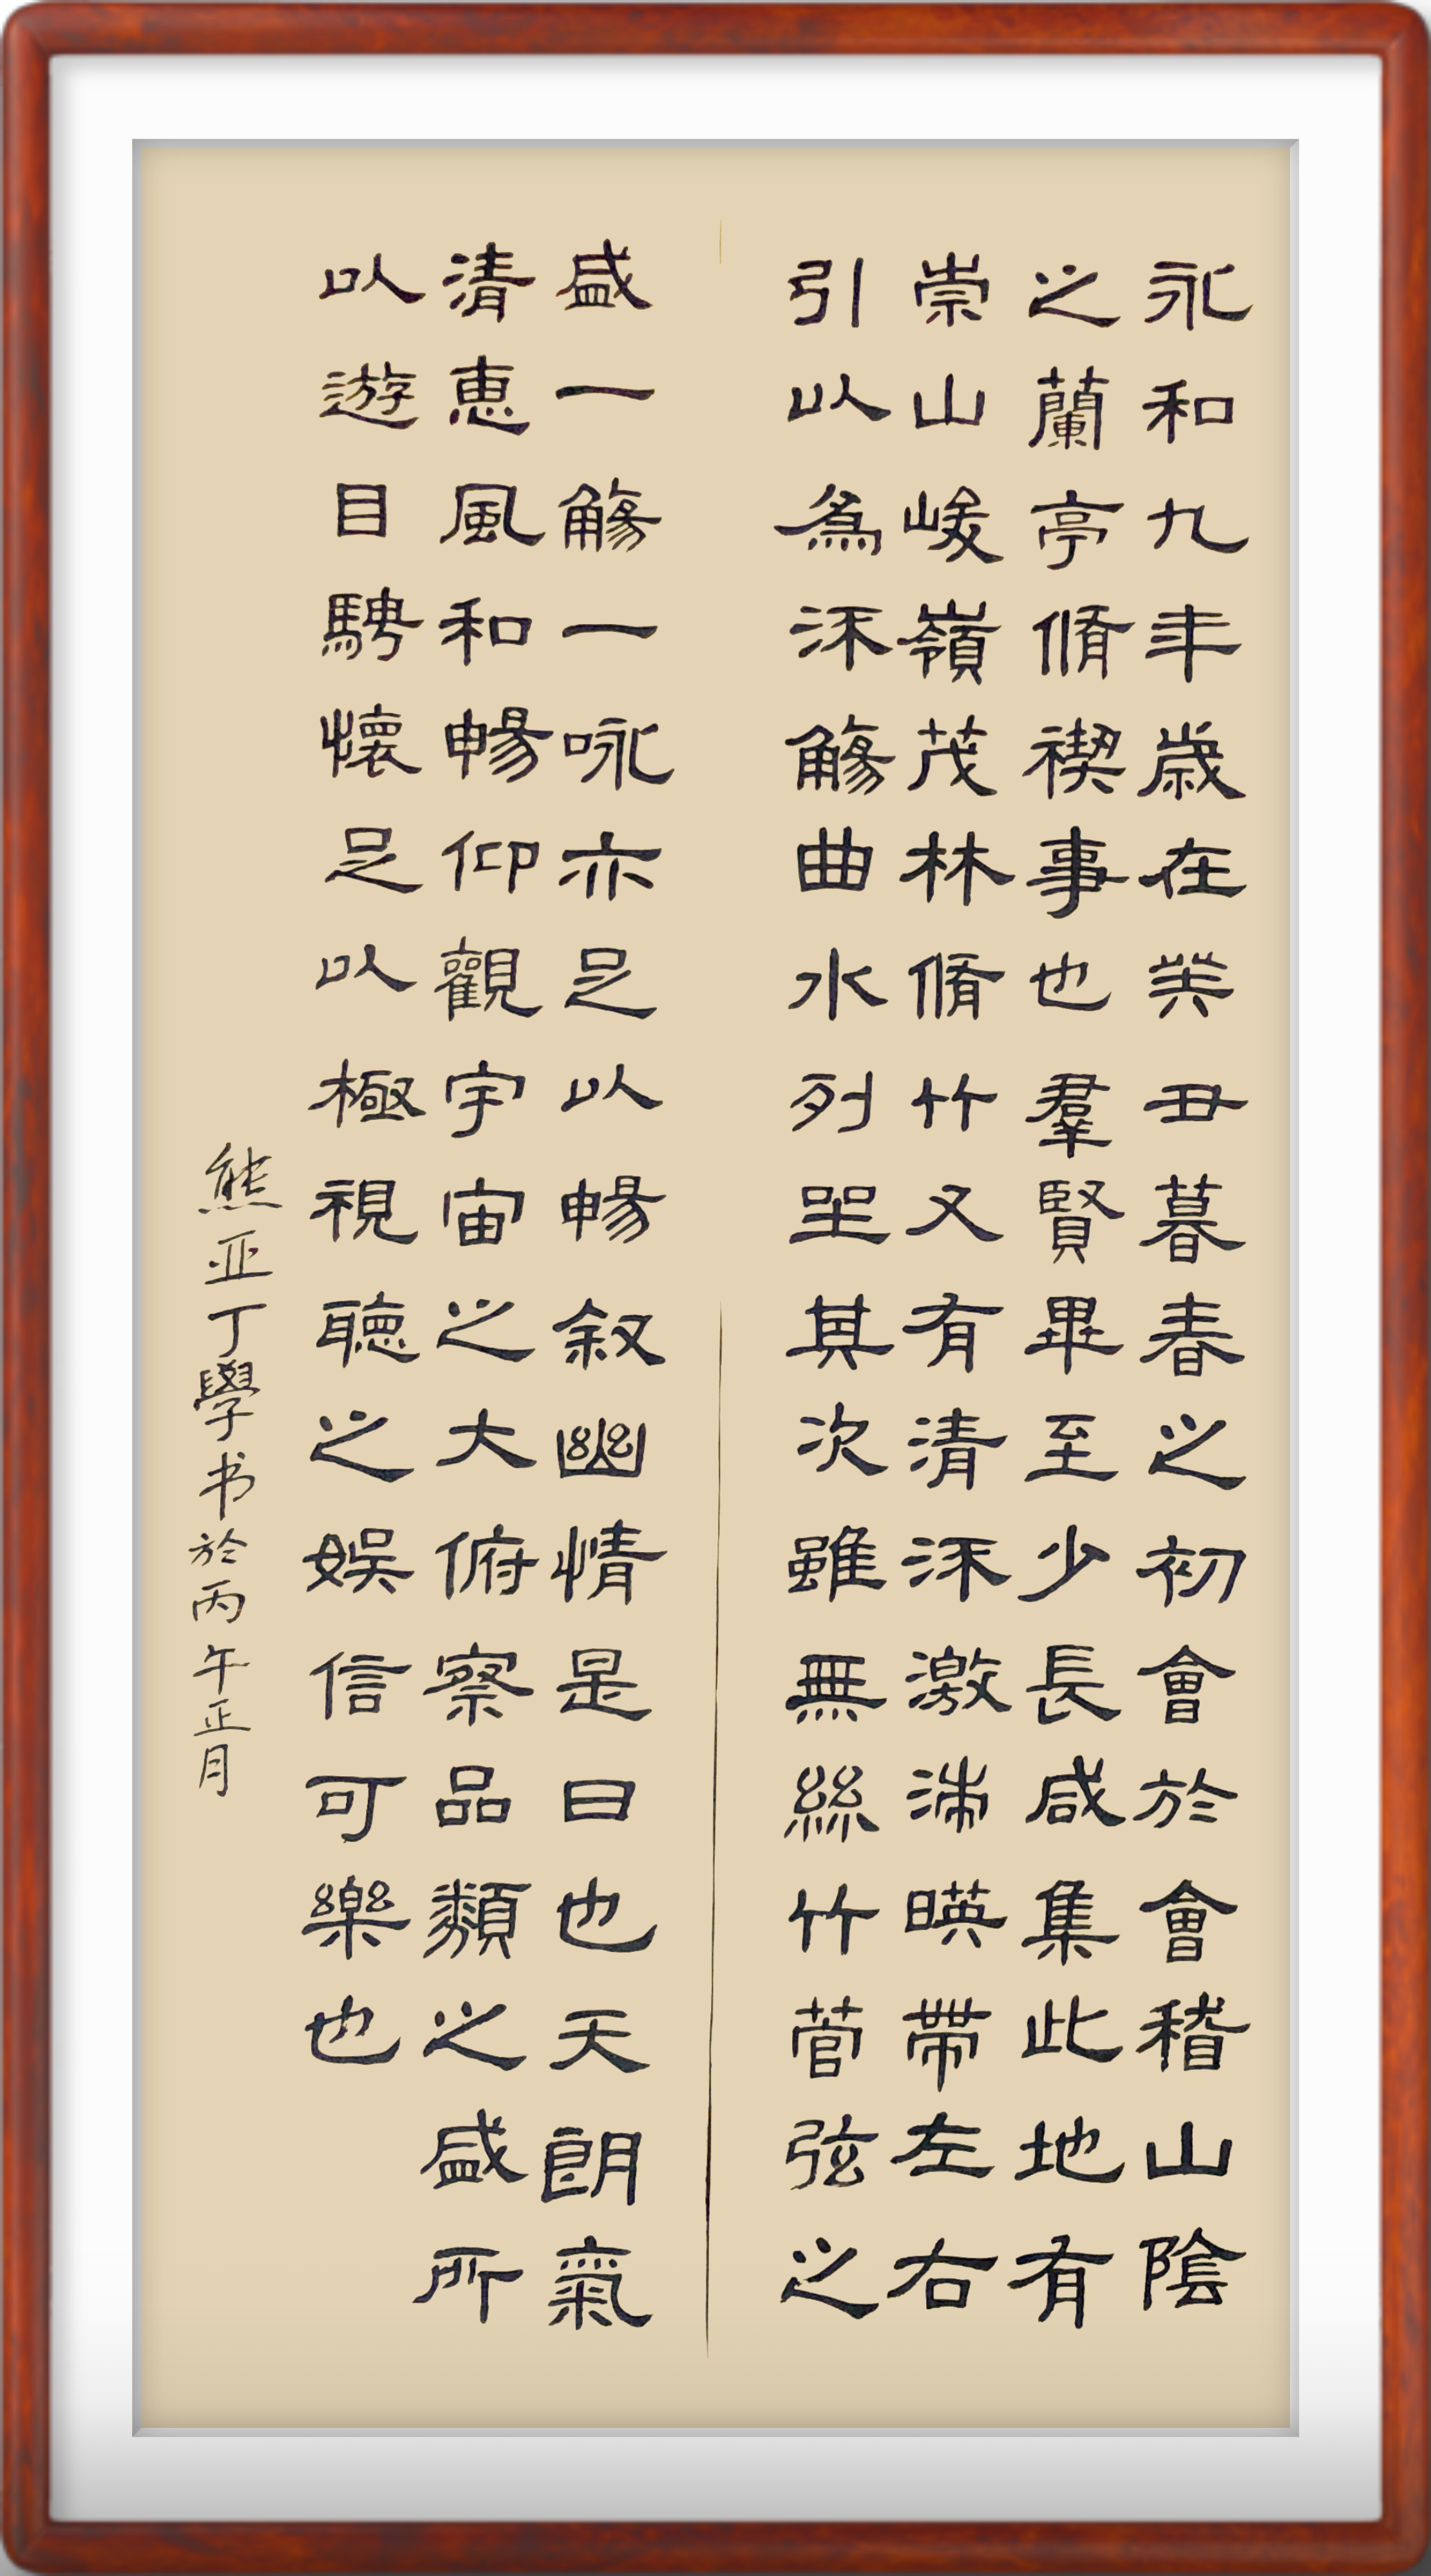 永和九年歲在癸丑暮春之初會於會稽山陰
之蘭亭脩禊事也羣賢畢至少長咸集此地有
崇山峻嶺茂林脩竹又有清流激湍暎帶左右
引以為流觴曲水列坐其次雖無絲竹管弦之
盛一觴一咏亦足以暢敘幽情是日也天朗氣
清惠風和暢仰觀宇宙之大俯察品類之盛所
以遊目騁懷足以極視聽之娛信可樂也
熊亚丁學书於丙午正月